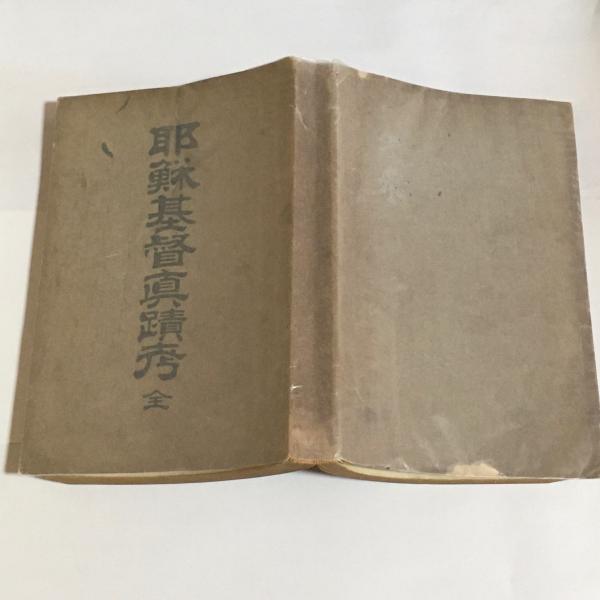 耶穌基督真蹟考 全